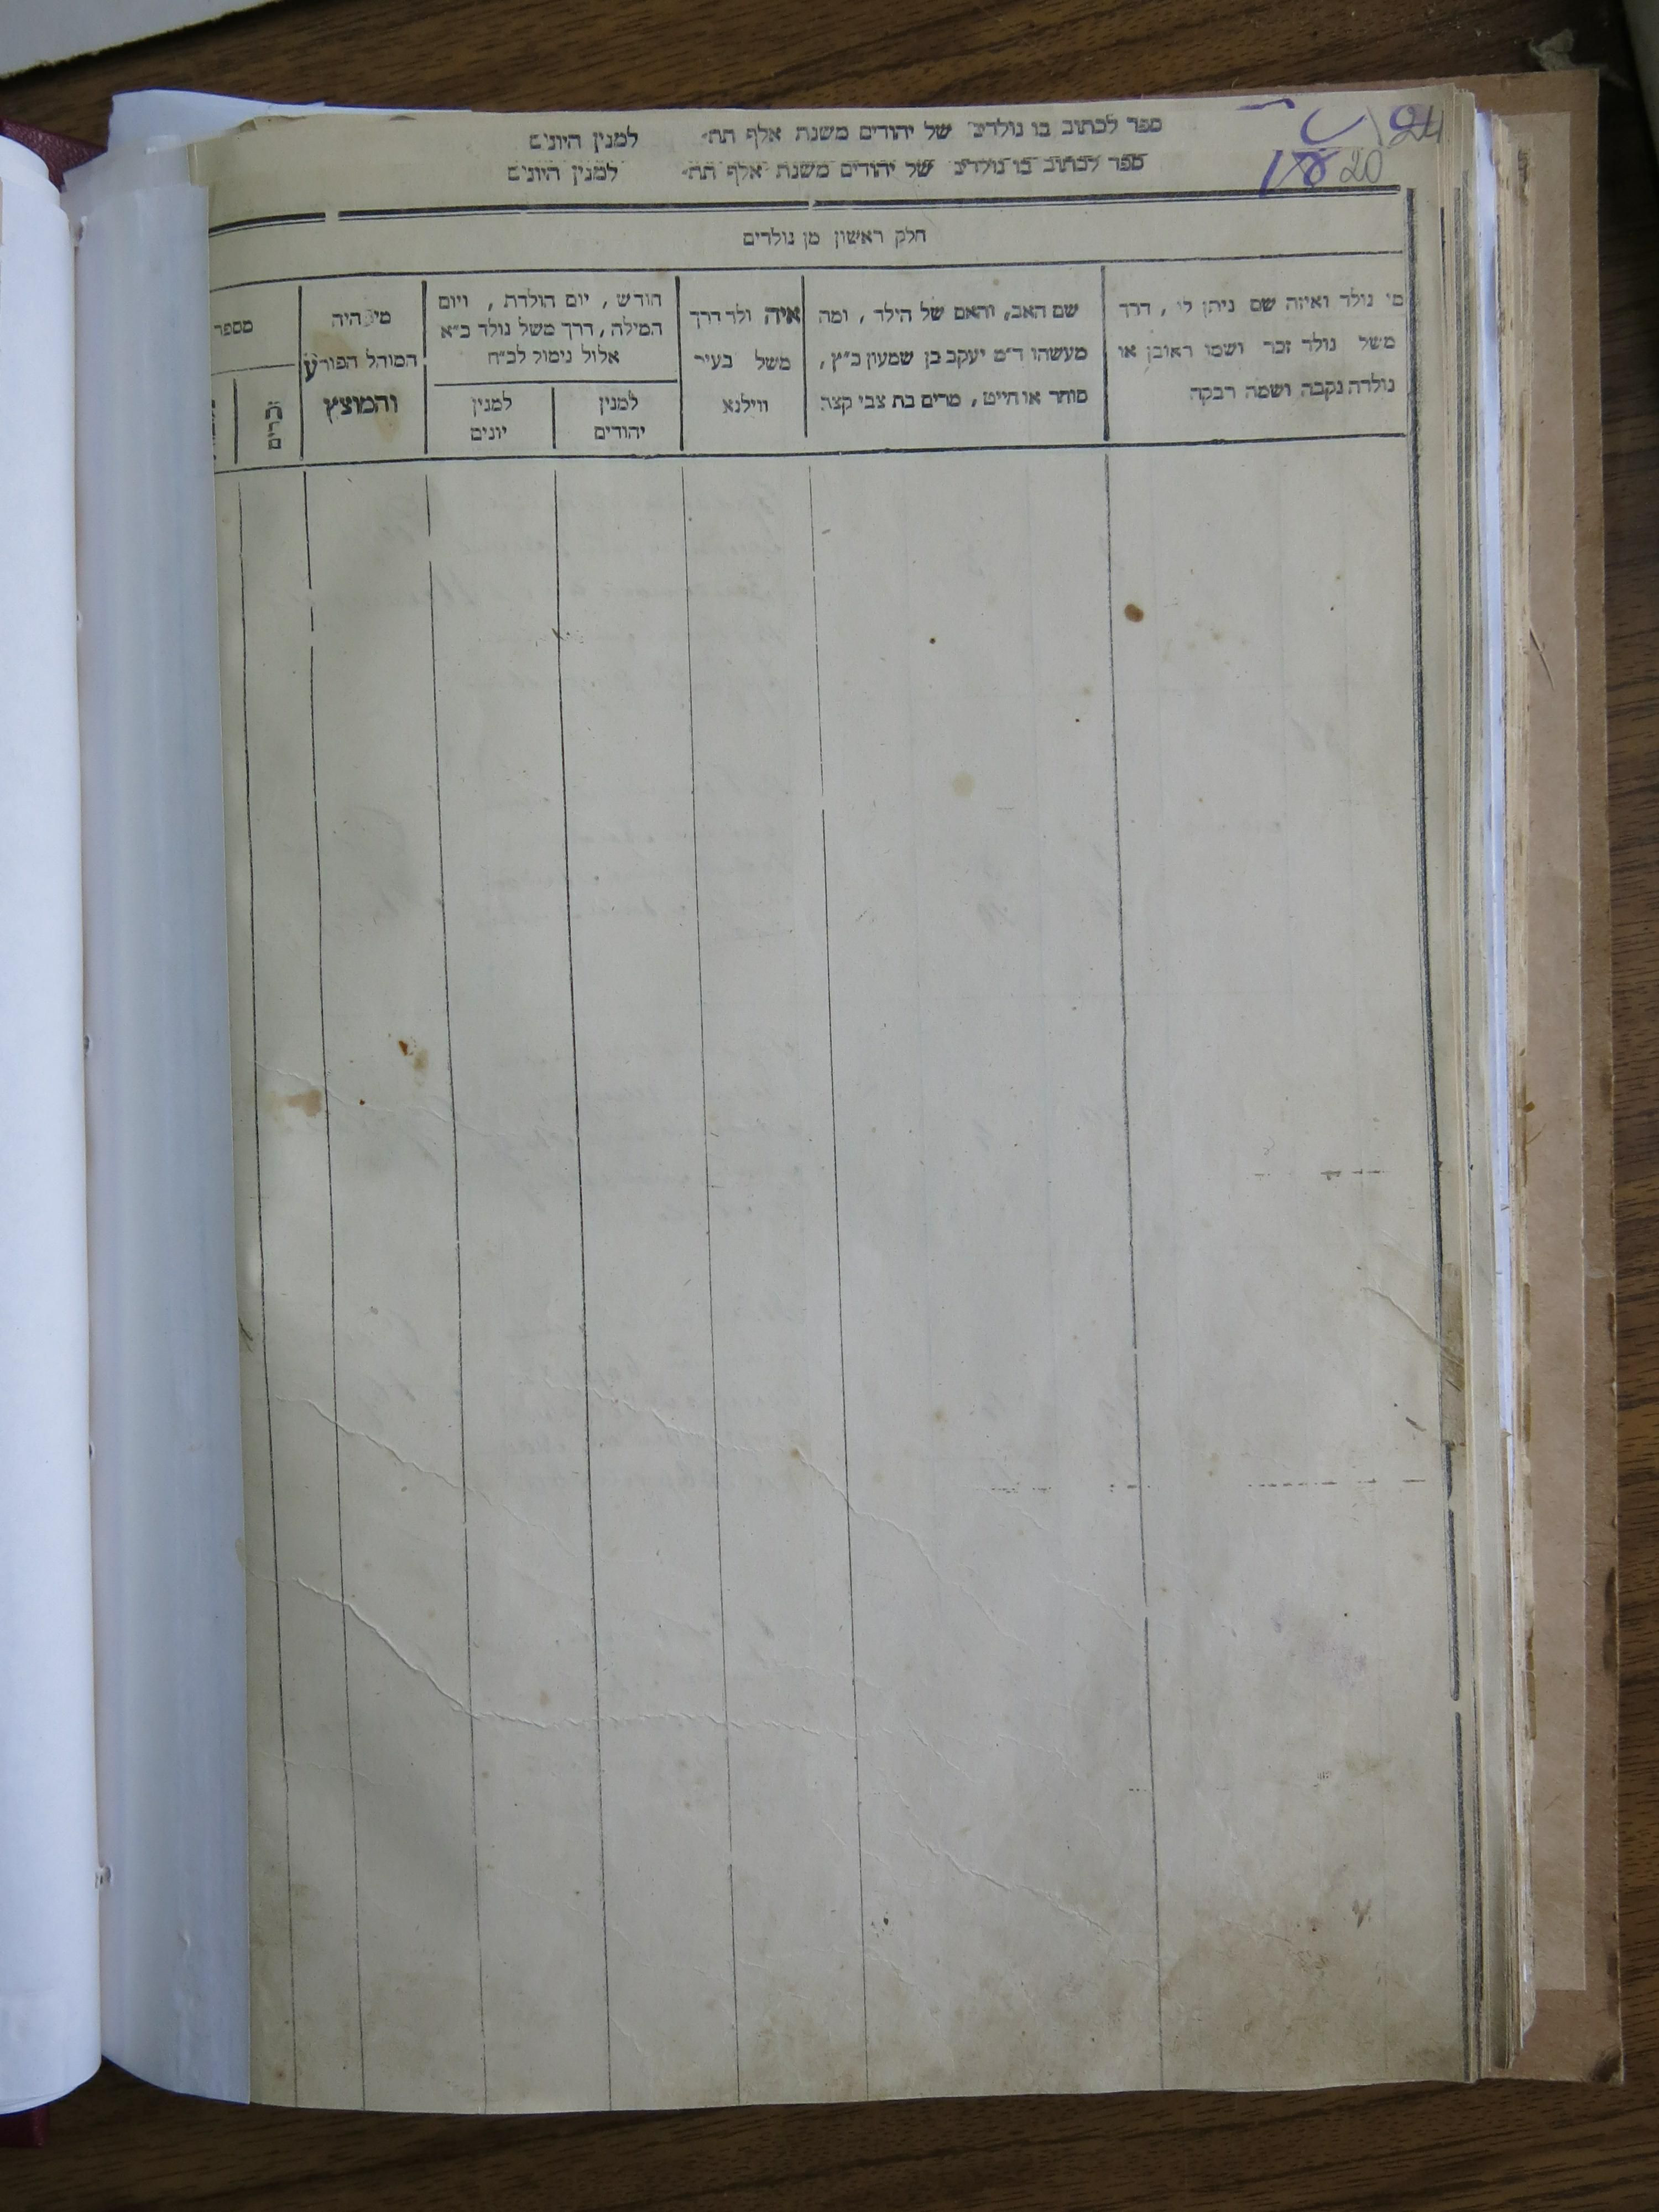 ספר לכתוב בו נולדים של יהודים משנת אלף תת למנין היונים
24
ספר לכתוב בו נולדים של יהודים משנת אלף תת למנין היונים
18 20
חלק ראשון מן נולדים
מי נולד ואיזה שם ניתן לו, דרך
משל נולד זכר ושמו ראובן או
נולדה נקבה ושמה רבקה
שם האב, והאם של הילד, ומה
מעשהו ד״מ יעקב בן שמעון כ״ץ,
סוחר או חייט, מרים בת צבי קצב
איה ולד דרך
משל בעיר
ווילנא
חודש, יום הולדת, ויום
המילה, דרך משל נולד כ״א
אלול נימול לכ״ח
למנין
יהודים
למנין
יונים
מי היה
המוהל הפורע
והמוצץ
מספר
זכרים